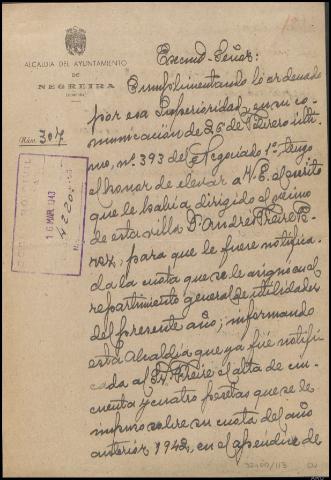 ALCALDIA DEL AYUNTAMIENTO
DE
NEGREIRA
Núm. 307
16 MAR. 943
4220
Excmo. Señor:
Cumplimentando lo ordenado
por esa Superioridad, en su co-
municación de 26 de Febrero últi-
mo, nº 393 del Negociado 1º, tengo
el honor de elevar a V. E. el escrito
que le había dirigido el vecino
de esta villa D. Andrés Freire
para que le fuere notifica-
da la cuota que se le asignó en el
repartimiento general de utilidades
del presente año; informando
esta Alcaldía que ya fué notifi-
cada al Sr. Freire el alta de cin-
cuenta y cuatro pesetas que se le
impuso sobre su cuota del año
anterior 1942, en el apéndice de
32400/113